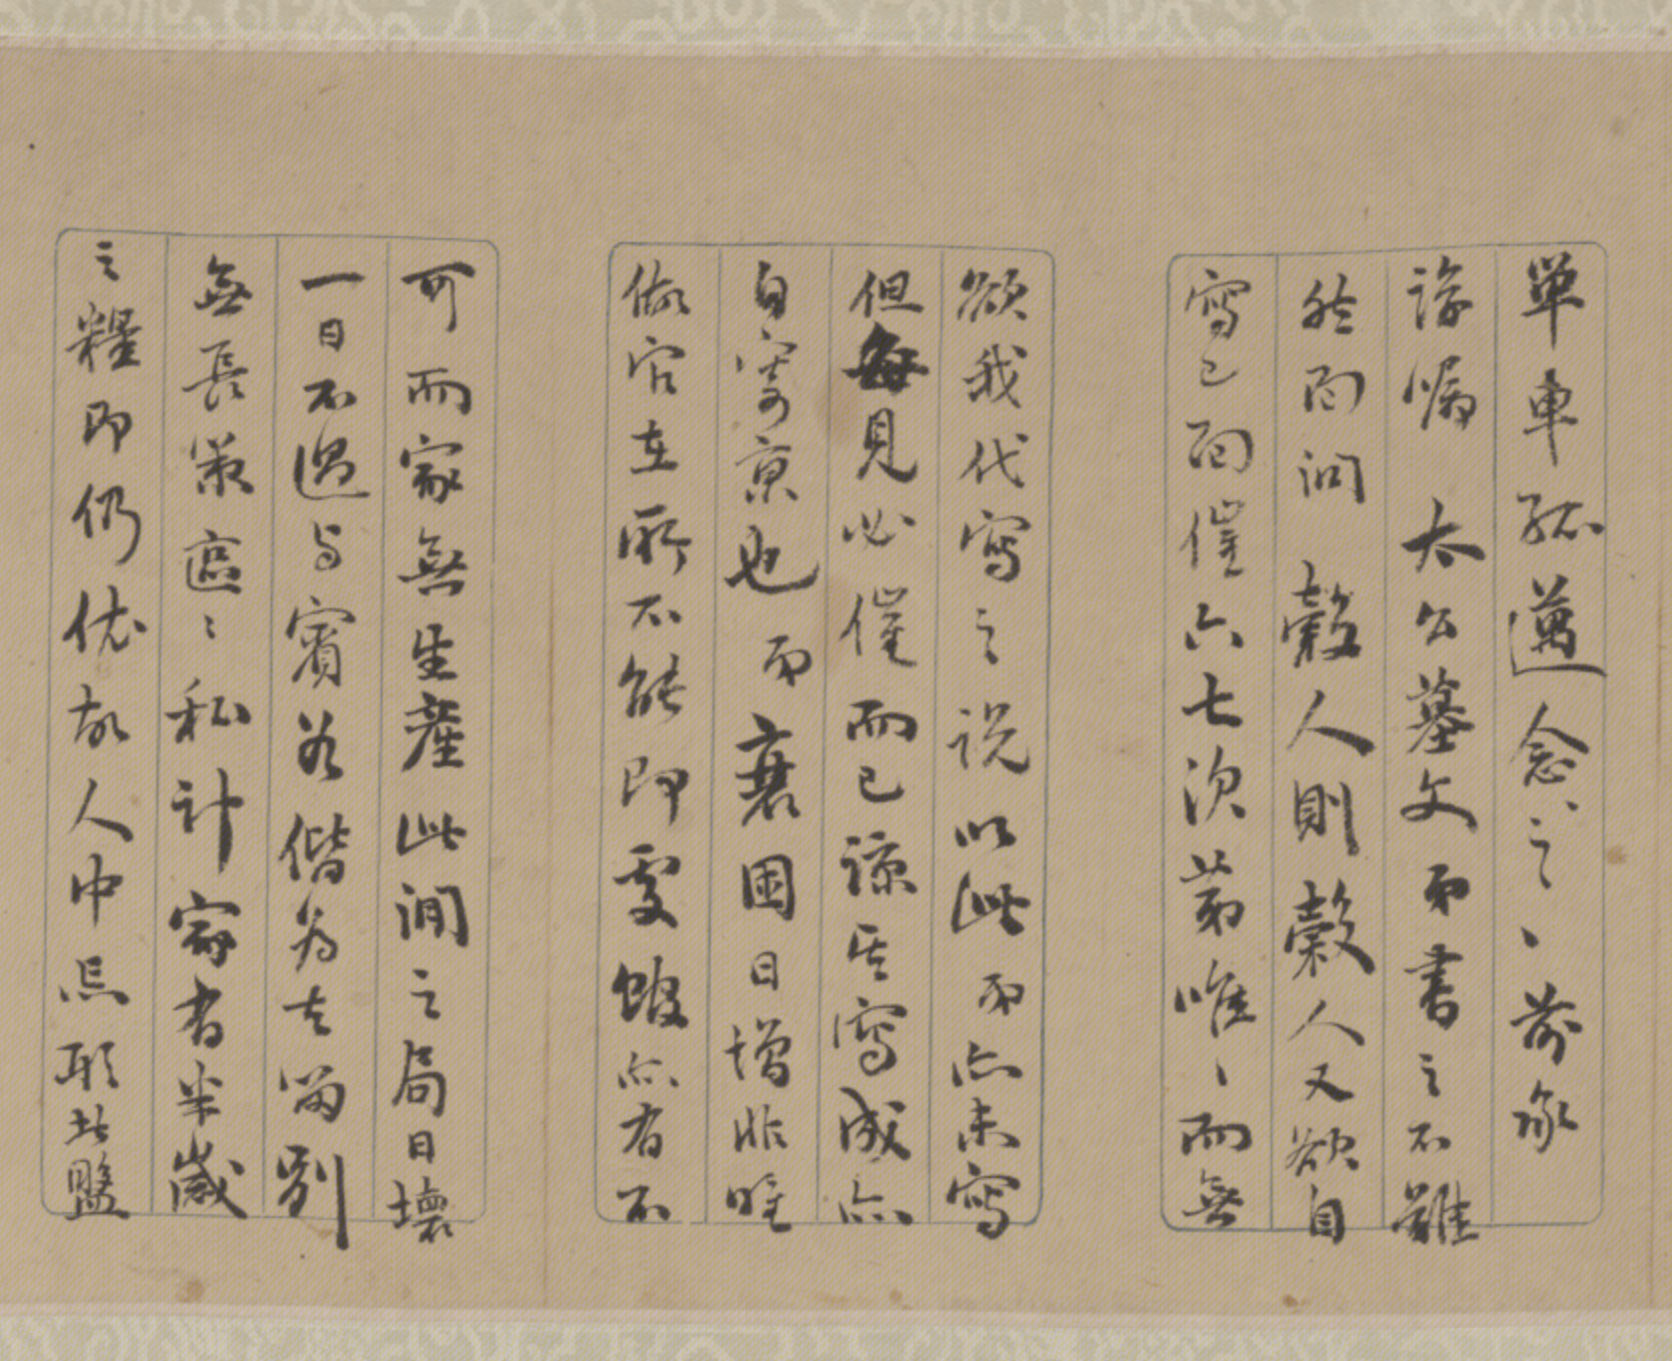 單車孤邁念之、前承
諄囑 太公墓文弟書之不難
然面詢 穀人則穀人又欲自
寫已面催六七次第唯、而無
欲我代寫之說以此弟亦未寫
但每見必催而已諒其寫成亦
自寄京也弟衰困日增非唯
做官在所不能即受餓亦有不
可而家無生產此間之局日壞
一日不過與賓谷偕為去留別
無長策區〻私計家省半歲
之糧即仍依故人中丞耶此鹽